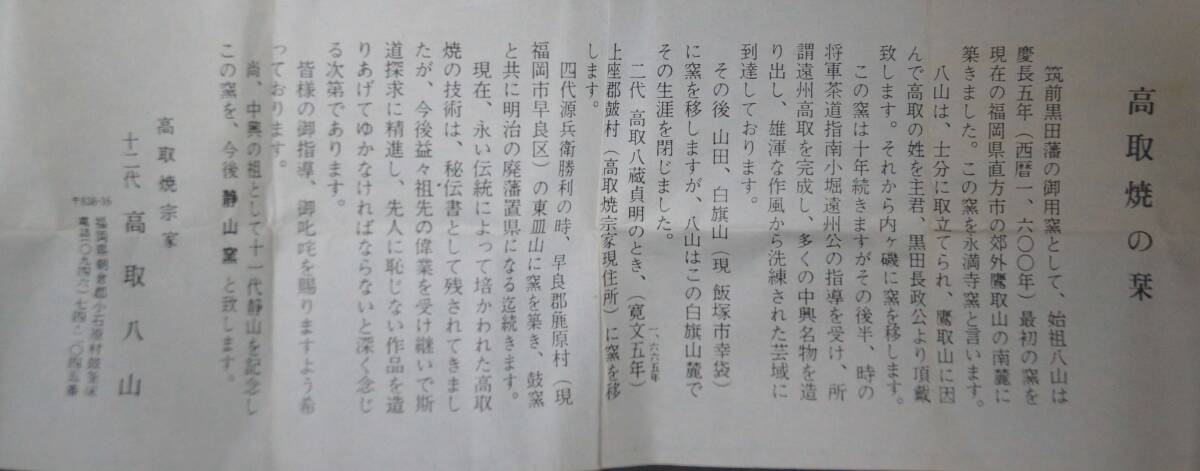 高取焼の栞
筑前黒田藩の御用窯として、始祖八山は
慶長五年（西暦一、六〇〇年）最初の窯を
現在の福岡県直方市の郊外鷹取山の南麓に
築きました。この窯を永満寺窯と言います。
八山は、士分に取立てられ、鷹取山に因
んで高取の姓を主君、黒田長政公より頂戴
致します。それから内ヶ磯に窯を移します。
この窯は十年続きますがその後半、時の
将軍茶道指南小堀遠州公の指導を受け、所
謂遠州高取を完成し、多くの中興名物を造
り出し、雄渾な作風から洗練された芸域に
到達しております。
その後 山田、白旗山（現 飯塚市幸袋）
に窯を移しますが、八山はこの白旗山麓で
その生涯を閉じました。
一、六六五年
二代 高取八蔵貞明のとき、（寛文五年）
上座郡鼓村（高取焼宗家現住所）に窯を移
します。
四代源兵衛勝利の時、早良郡麁原村（現
福岡市早良区）の東皿山に窯を築き、鼓窯
と共に明治の廃藩置県になる迄続きます。
現在、永い伝統によって培かわれた高取
焼の技術は、秘伝書として残されてきまし
たが、今後益々祖先の偉業を受け継いで斯
道探求に精進し、先人に恥じない作品を造
りあげてゆかなければならないと深く念じ
る次第であります。
皆様の御指導、御叱咤を賜りますよう希
っております。
尚、中興の祖として十一代静山を記念し
この窯を、今後 静山窯 と致します。
高取焼宗家
十二代 高取八山
福岡県朝倉郡小石原村鼓